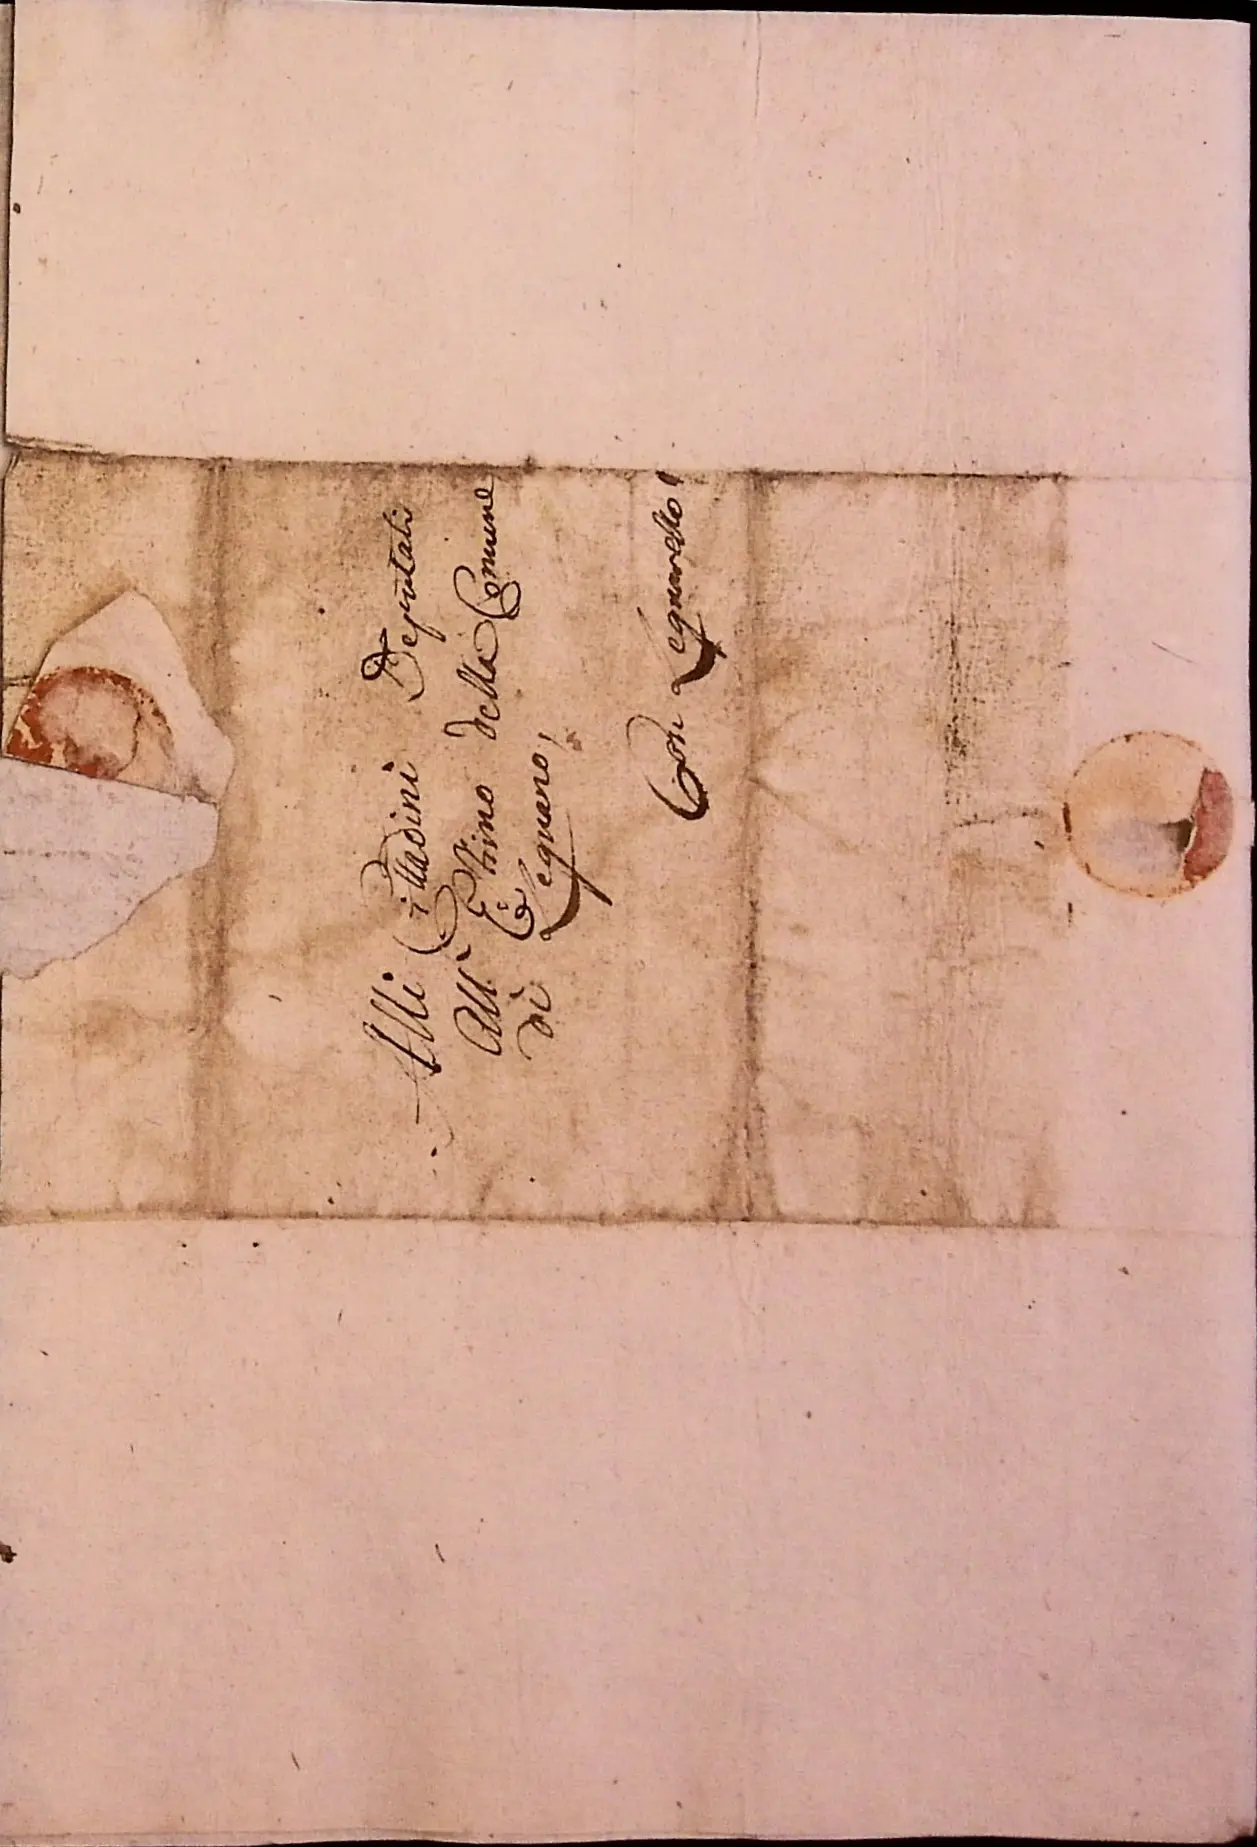 Alli Cittadini Deputati
All' Estimo della Comune
di Legnano
Con Legnarello